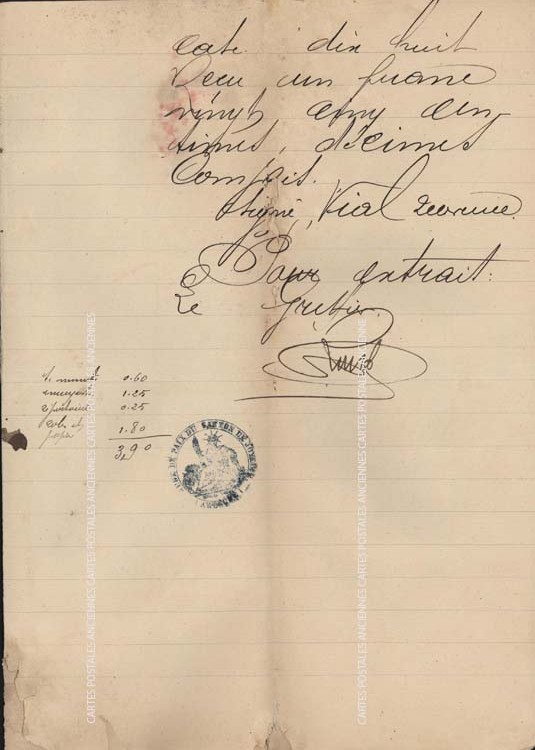 case dix huit
Reçu un franc
vingt cinq cen-
times, décimes
Compris.
Signé, Vial
Pour extrait:
Le Greffier.
0.60
enregist 1.25
répertoire 0.25
1.80
papier
3,90
JUGE DE PAIX DU CANTON DE
CARTES POSTALES ANCIENNES CARTES POSTALES ANCIENNES CARTES POSTALES ANCIENNES
CARTES POSTALES ANCIENNES CARTES POSTALES ANCIENNES CARTES POSTALES ANCIENNES